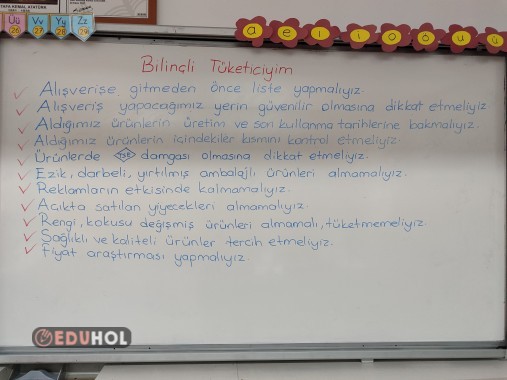 Üü Vv Yy Zz
26 27 28 29
a e ı i o ö u ü
Bilinçli Tüketiciyim
✓ Alışverişe gitmeden önce liste yapmalıyız.
✓ Alışveriş yapacağımız yerin güvenilir olmasına dikkat etmeliyiz.
✓ Aldığımız ürünlerin üretim ve son kullanma tarihlerine bakmalıyız.
✓ Aldığımız ürünlerin içindekiler kısmını kontrol etmeliyiz.
✓ Ürünlerde TSE damgası olmasına dikkat etmeliyiz.
✓ Ezik, darbeli, yırtılmış ambalajlı ürünleri almamalıyız.
✓ Reklamların etkisinde kalmamalıyız.
✓ Açıkta satılan yiyecekleri almamalıyız.
✓ Rengi, kokusu değişmiş ürünleri almamalı, tüketmemeliyiz.
✓ Sağlıklı ve kaliteli ürünler tercih etmeliyiz.
✓ Fiyat araştırması yapmalıyız.
EDUHOL